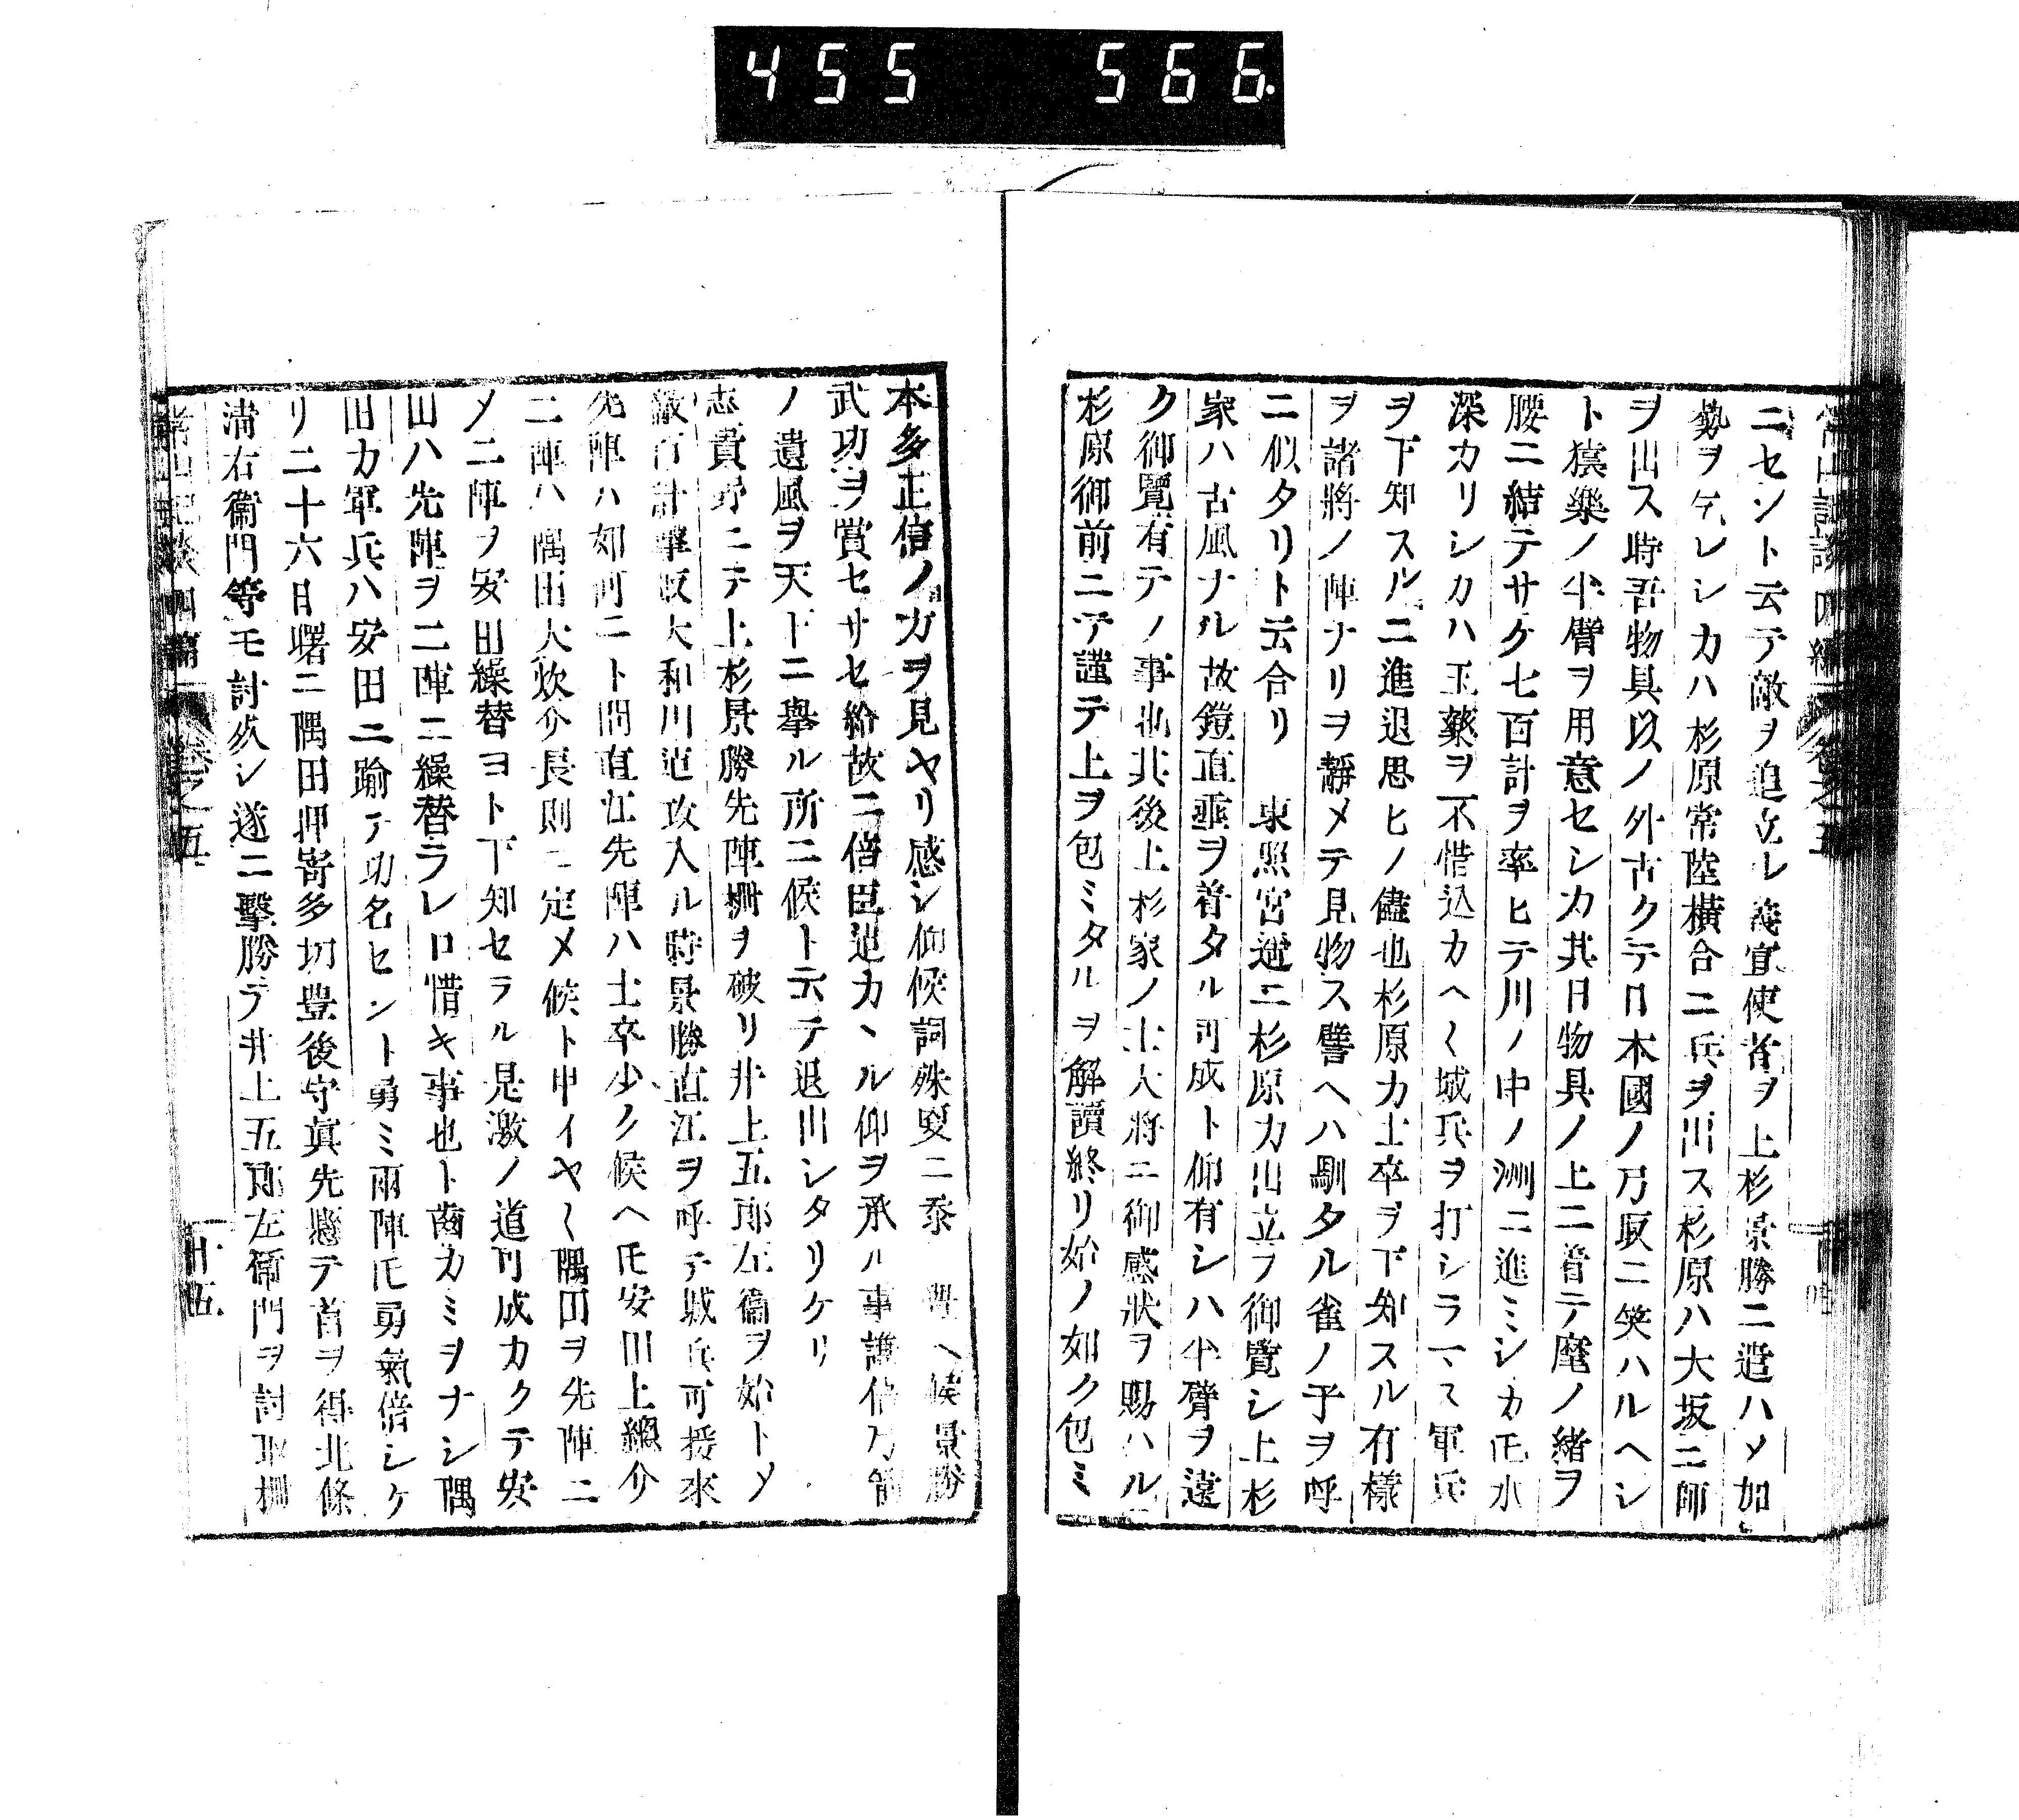 455 566.
常山記談四編 卷之五
ニセント云テ敵ヲ追立レ義宣使者ヲ上杉景勝ニ遣ハメ加
勢ヲ乞レシカハ杉原常陸橫合ニ兵ヲ出ス杉原ハ大坂ニ師
ヲ出ス時吾物具以ノ外古クテ日本國ノ乃取ニ笑ハルヘシ
ト猿樂ノ半臂ヲ用意セシカ其日物具ノ上ニ着テ麾ノ緖ヲ
腰ニ結テサケ七百計ヲ率ヒテ川ノ中ノ洲ニ進ミシカ𪜈水
深カリシカハ玉藥ヲ不惜込カヘ〱城兵ヲ打シラマス軍兵
ヲ下知スルニ進退思ヒノ儘也杉原カ士卒ヲ下知スル有樣
ヲ諸將ノ陣ナリヲ靜メテ見物ス譬ヘハ馴タル雀ノ子ヲ呼
ニ似タリト云合リ 東照宮遙ニ杉原カ出立ヲ御覽シ上杉
家ハ古風ナル故鎧直垂ヲ着タル可成ト仰有シハ半臂ヲ遠
ク御覽有テノ事也其後上杉家ノ士大將ニ御感狀ヲ賜ハル
杉原御前ニテ謹テ上ヲ包ミタルヲ解讀終リ始ノ如ク包ミ
本多正信ノカヲ見ヤリ感シ仰候詞殊更ニ忝 候景勝
武功ヲ賞セサセ給故ニ倍臣迠カヽル仰ヲ承ル事謙信乃箭
ノ遺風ヲ天下ニ擧ル所ニ候ト云テ退出シタリケリ
志貴野ニテ上杉景勝先陣柵ヲ破リ井上五郎左衞ヲ始トメ
敵百計擊取大和川迠攻入ル時景勝直江ヲ呼テ城兵可援來
先陣ハ如何ニト問直江先陣ハ士卒少ク候ヘ𪜈安田上總介
二陣ハ隅田大炊介長則ニ定メ候ト申イヤ〱隅田ヲ先陣ニ
メ二陣ヲ安田繰替ヨト下知セラル是激ノ道可成カクテ安
田ハ先陣ヲ二陣ニ繰替ラレ口惜キ事也ト齒カミヲナシ隅
田カ軍兵ハ安田ニ踰テ功名セント勇ミ兩陣𪜈勇氣倍シケ
リ二十六日曙ニ隅田押寄多切豊後守眞先懸テ首ヲ得北條
淸右衞門等モ討死シ遂ニ擊勝テ井上五郎左衞門ヲ討取柵
常山記談四編 卷之五 廿五